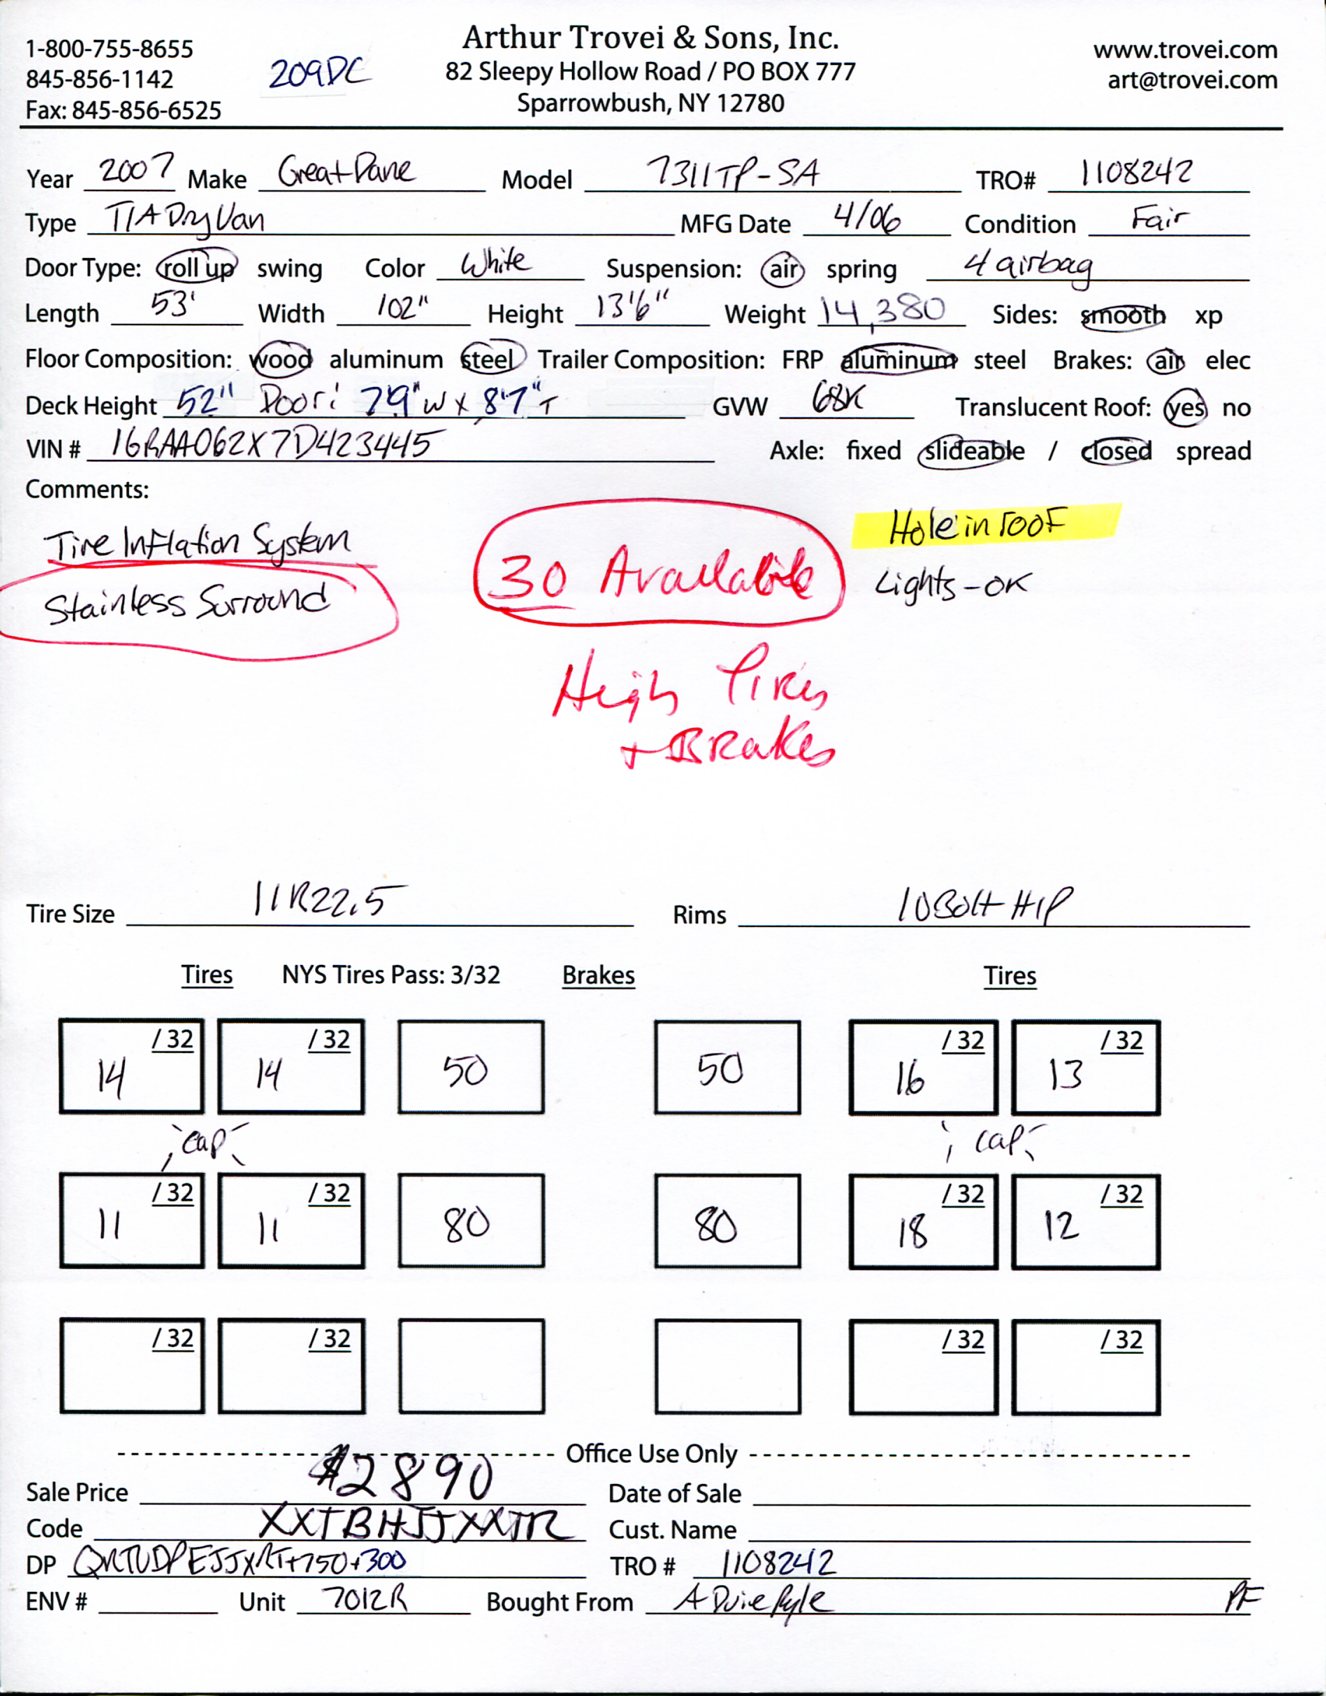 1-800-755-8655
845-856-1142
Fax: 845-856-6525
209DC
Arthur Trovei & Sons, Inc.
82 Sleepy Hollow Road / PO BOX 777
Sparrowbush, NY 12780
www.trovei.com
art@trovei.com
Year 2007 Make Great Dane Model 7311TP-SA TRO# 1108242
Type T/A Dry Van MFG Date 4/06 Condition Fair
Door Type: roll up swing Color White Suspension: air spring 4 airbag
Length 53' Width 102" Height 13'6" Weight 14,380 Sides: smooth xp
Floor Composition: wood aluminum steel Trailer Composition: FRP aluminum steel Brakes: air elec
Deck Height 52" Door: 7'9" W x 8'7" T GVW 68K Translucent Roof: yes no
VIN # 1GRAA062X7D423445 Axle: fixed slideable / closed spread
Comments:
Tire Inflation System
Stainless Surround
30 Available
High Tires
+ Brakes
Hole in roof
Lights-OK
Tire Size 11R22.5 Rims 10 Bolt H/P
Tires NYS Tires Pass: 3/32 Brakes Tires
14 /32 14 /32 50 50 16 /32 13 /32
cap cap
11 /32 11 /32 80 80 18 /32 12 /32
/32 /32 /32 /32
Office Use Only
Sale Price $2890 Date of Sale
Code XXTBHJJXXTR Cust. Name
DP TRO # 1108242
ENV # Unit 7012R Bought From A Duie Pyle PF